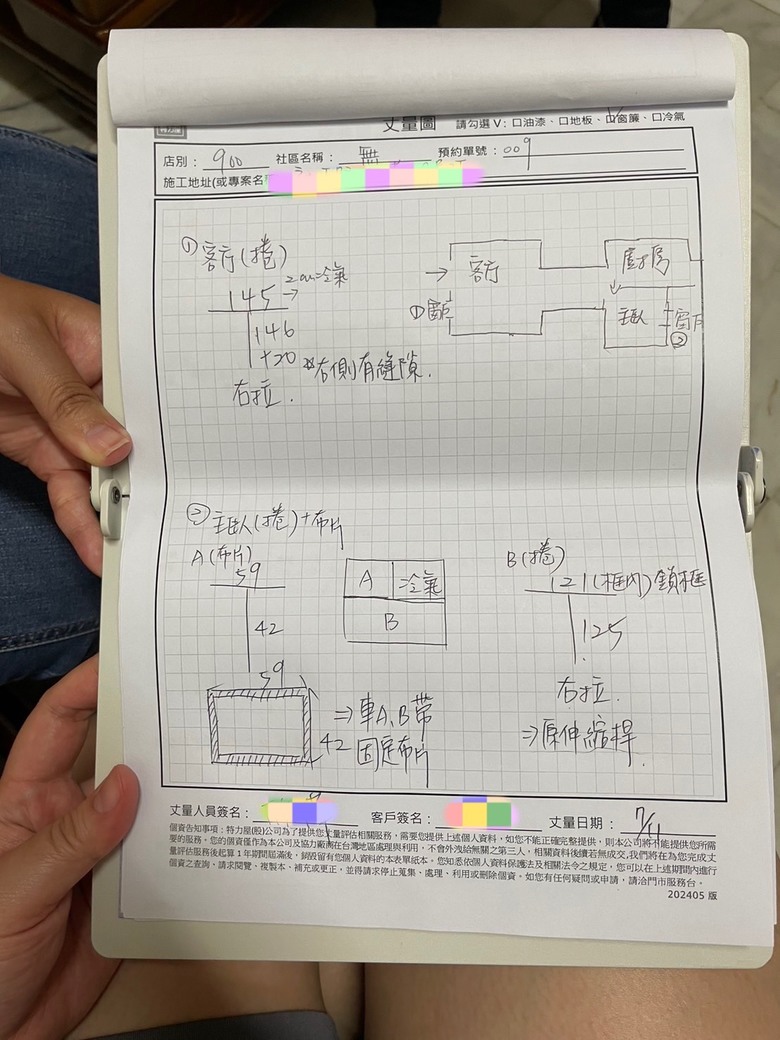 丈量圖 請勾選V：口油漆、口地板、口窗簾、口冷氣
店別： 900 社區名稱： 無 預約單號：009
施工地址(或專案名
① 客厅(捲)
145 → 2cm冷氣
146
+20 *右側有縫隙.
右拉.
→ 客厅 廚房
①窗戶 主臥 窗戶
②
② 主臥(捲)+布片
A(布片)
59
42
A 冷氣
B
B(捲)
121(框內)鎖框
125
右拉.
⇒原伸縮桿.
59
42
⇒車A,B帶
固定布片
丈量人員簽名： 客戶簽名： 丈量日期： 7/11
個資告知事項：特力屋(股)公司為了提供您丈量評估相關服務，需要您提供上述個人資料，如您不能正確完整提供，則本公司將不能提供您所需
要的服務。您的資僅作為本公司及協力廠商在台灣地區處理與利用，不會外洩給無關之第三人，相關資料後續若無成交，我們將在為您完成丈
量評估服務後起算1年期間屆滿後，銷毀留有您個人資料的本表單紙本。您知悉依個人資料保護法及相關法令之規定，您可以在上述期間內進行
個資之查詢、請求閱覽、複製本、補充或更正，並得請求停止蒐集、處理、利用或刪除個資。如您有任何疑問或申請，請洽門市服務台。
202405 版